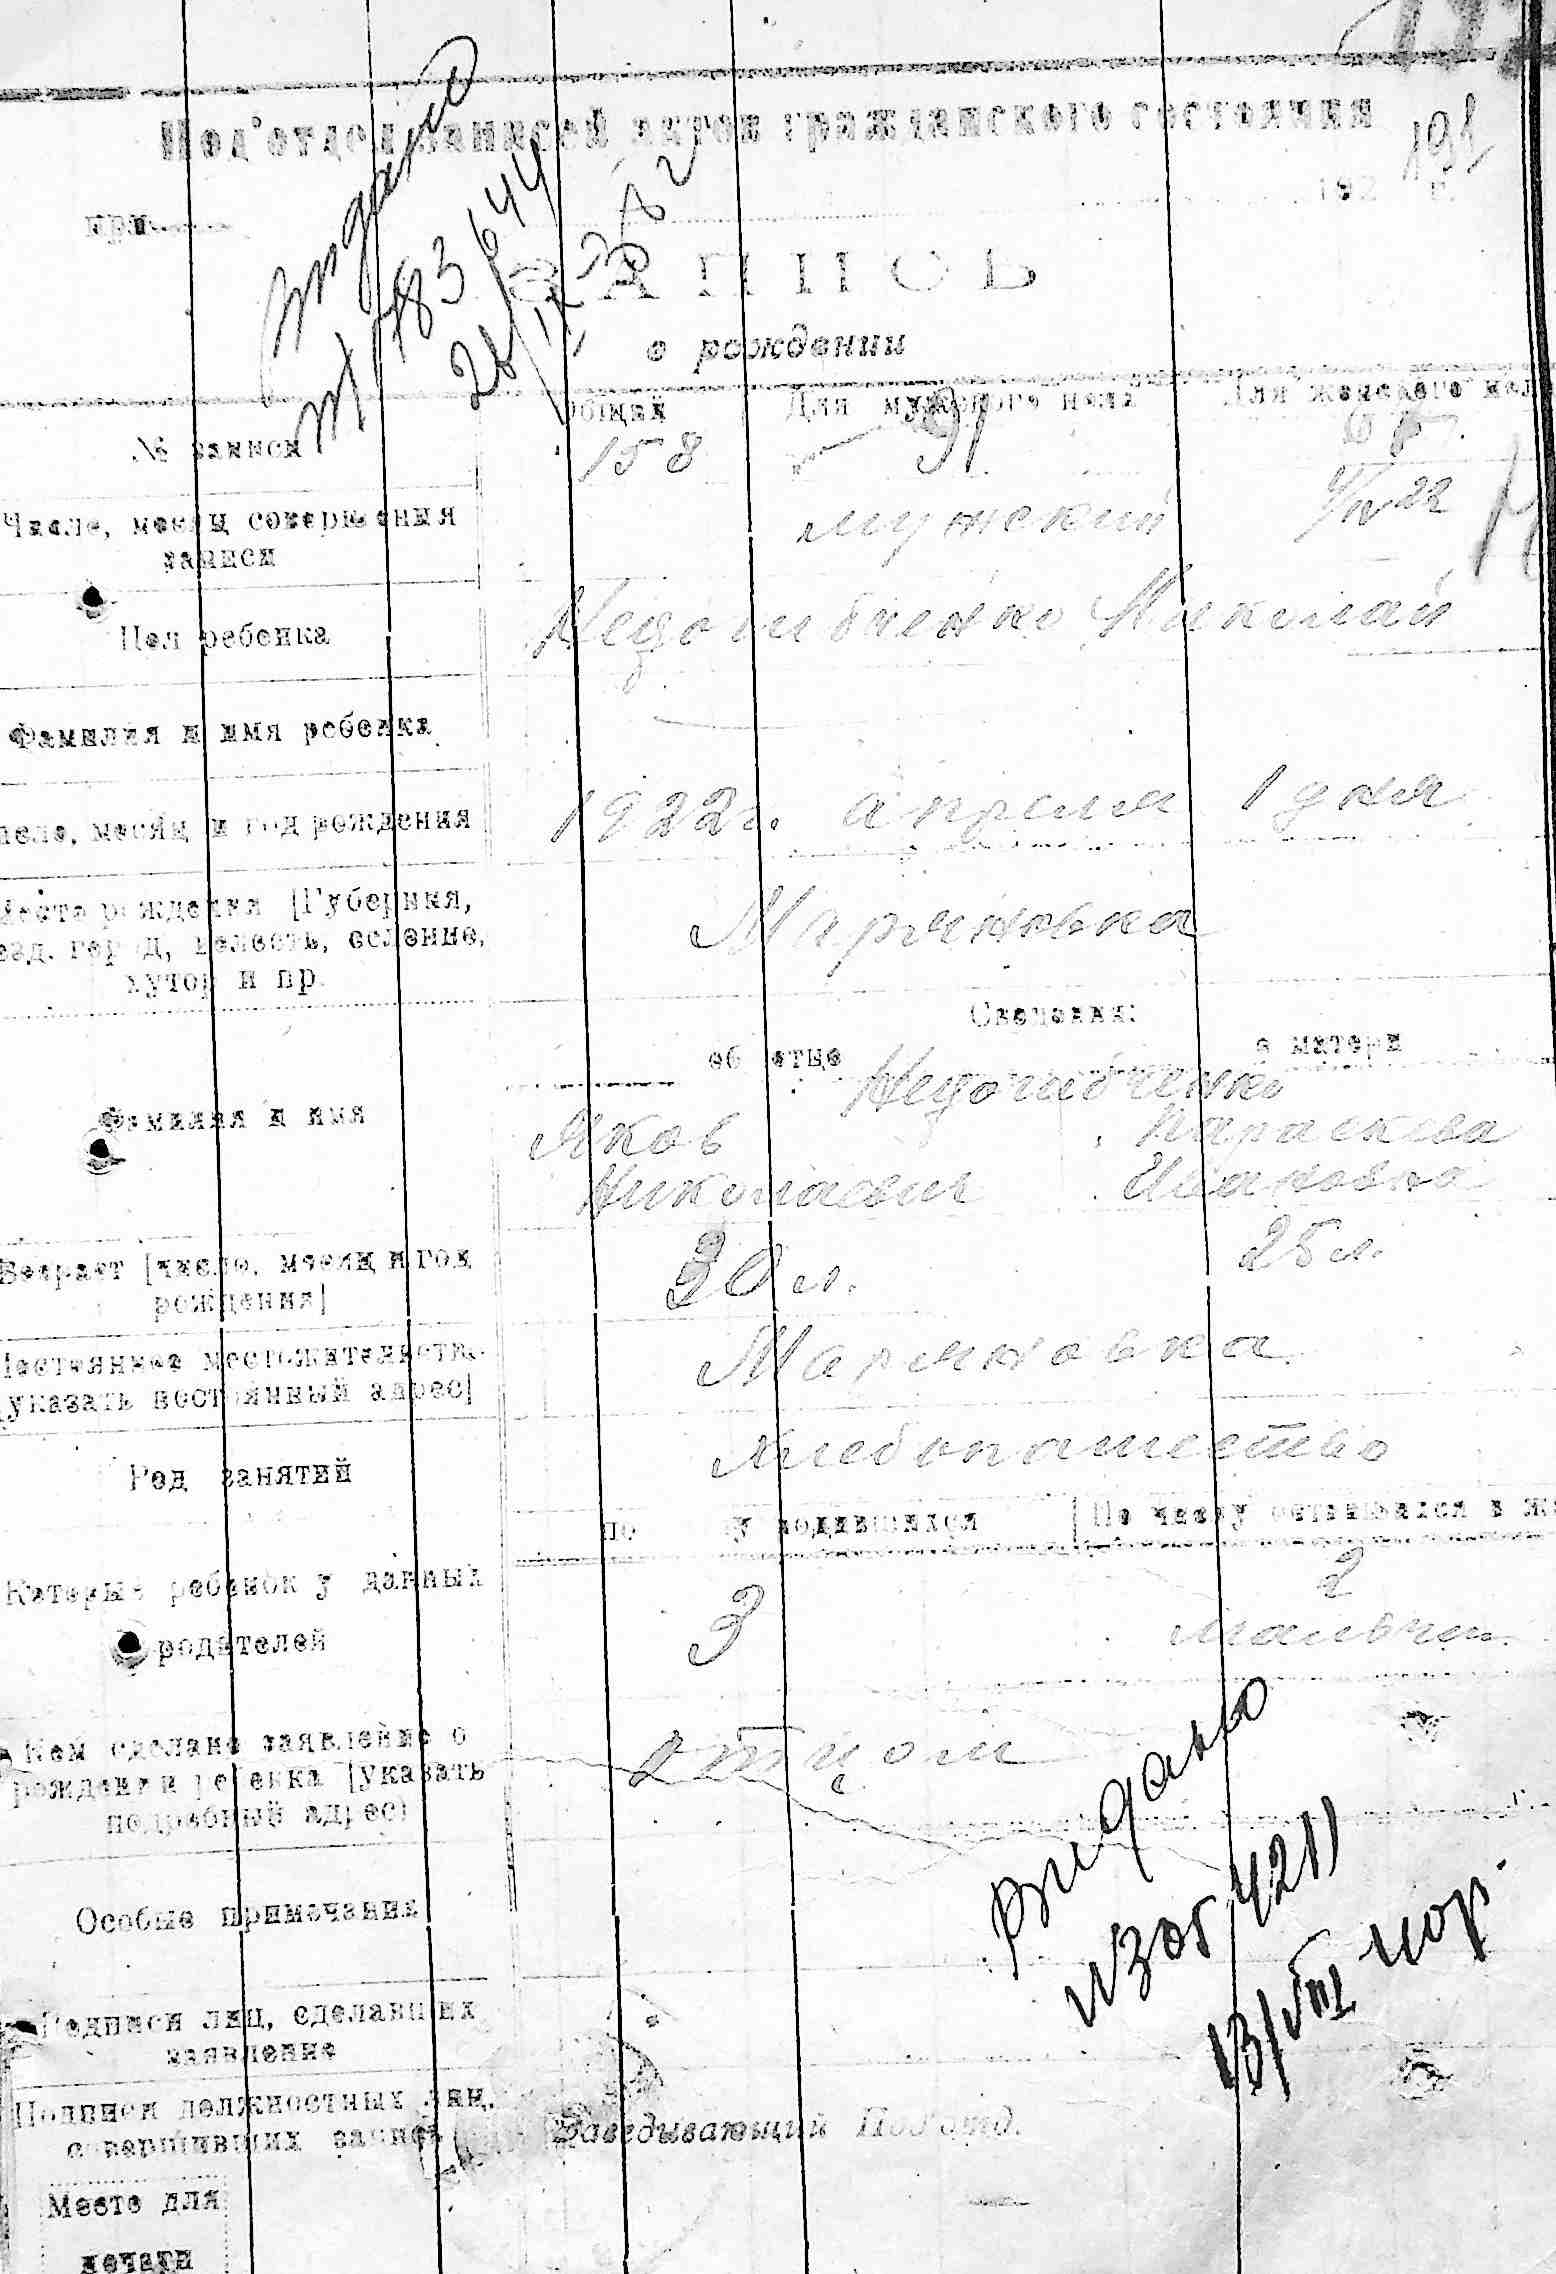 Под'отдел записей актов гражданского состояния
191
при 192 г.
ЗАПИСЬ
о рождении
Общий Для мужского пола Для женского
№ записи 158 91
Число, месяц совершения
записи
мужский
Пол ребенка
Николай
Фамилия и имя ребенка
число, месяц и год рождения 1922 г. апреля 1 дня
Место рождения [Губерния,
уезд, город, волость, селение,
хутор и пр.
Мариновка
Сведения:
об отце о матери
Фамилия и имя
Яков Параскева
Николаевич Ивановна
Возраст [число, месяц и год
рождения]
30 л. 25 л.
Постоянное местожительство
[указать постоянный адрес]
Мариновка
Род занятий хлебопашество
по родившихся По числу оставшихся в
Который ребенок у данных
родителей
3 2
Кем сделано заявление о
рождении ребенка [указать
подробный адрес)
отцом
Особые примечания
Подписи лиц, сделавших
заявление
Подписи должностных лиц,
совершивших запись
Заведывающий Под'отд.
Место для
печати